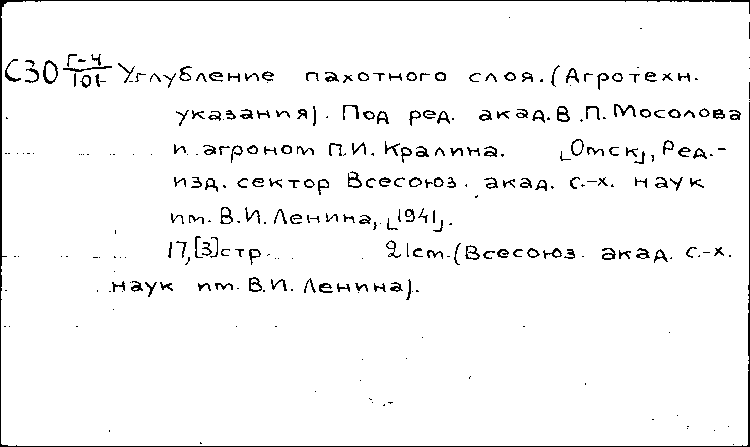 С30 Г-4/101 Углубление пахотного слоя. (Агротехн.
указания). Под ред. акад. В.П. Мосолова
и агроном П.И. Кралина. [Омск], Ред.-
изд. сектор Всесоюз. акад. с.-х. наук
им. В.И. Ленина, [1941].
17,[3]стр. 21см. (Всесоюз. акад. с.-х.
наук им. В.И. Ленина).